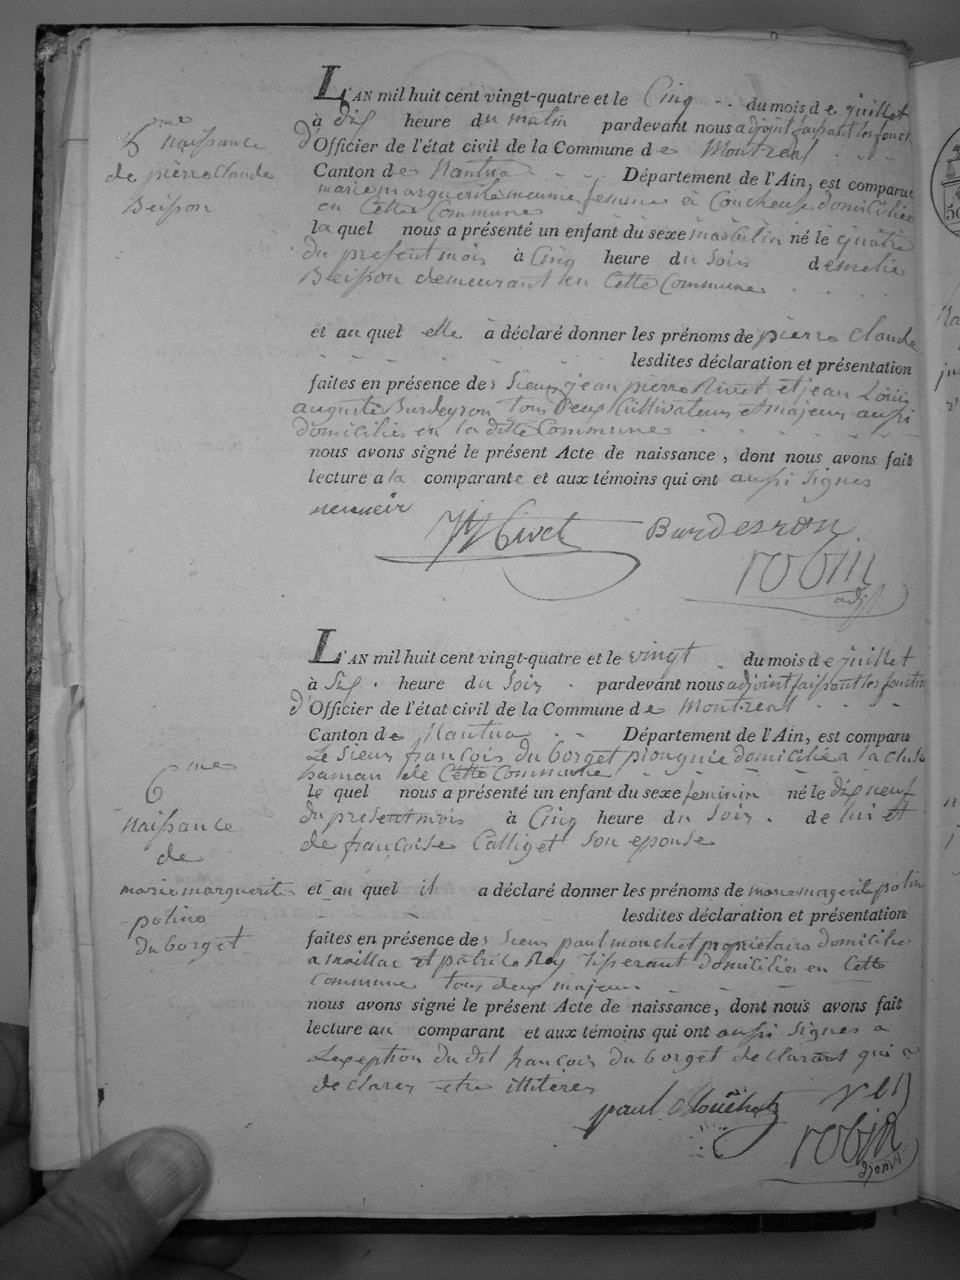 5me Naissance
de pierre Claude
Beisson
L'AN mil huit cent vingt-quatre et le Cinq du mois de juillet
à dix heure du matin pardevant nous adjoint faissant les fonct
d'Officier de l'état civil de la Commune de Montreal
Canton de Nantua Département de l'Ain, est comparue
marie marguerite femme à Coucheuse domiciliée
en Cette Commune
la quel nous a présenté un enfant du sexe masculin né le quatre
du present mois à Cinq heure du Soir de melie
Beisson demeurant en Cette Commune
et au quel elle à déclaré donner les prénoms de pierre Claude
lesdites déclaration et présentation
faites en présence des Sieurs jean pierre Rivet et jean Louis
auguste Burdeyron tous deux Cultivateurs et majeurs aussi
domicilies en la dite Commune
nous avons signé le présent Acte de naissance, dont nous avons fait
lecture a la comparante et aux témoins qui ont aussi Signes
Rivet Burdeyron
robin
adj
6me
Naissance
de
marie marguerite
potine
du borget
L'AN mil huit cent vingt-quatre et le vingt du mois de juillet
à Six heure du Soir pardevant nous adjoint faissant les fonction
d'Officier de l'état civil de la Commune de Montreal
Canton de Nantua Département de l'Ain, est comparu
Le Sieur françois du borget domicilié a la cluse
hamau de Cette Commune
le quel nous a présenté un enfant du sexe feminin né le dix neuf
du present mois à Cinq heure du Soir de lui et
de françoise Calliget Son epouse
et au quel il a déclaré donner les prénoms de marie margerite potine
lesdites déclaration et présentation
faites en présence des Sieurs paul mouchet propriétaire domicilié
a maillac et patrice Rey Tisserant domicilié en Cette
Commune tous deux majeurs
nous avons signé le présent Acte de naissance, dont nous avons fait
lecture au comparant et aux témoins qui ont aussi Signes a
Lexeption du dit françois du borget declarant qui a
declarer etre illiteres
paul Mouchet
robin
adjoint